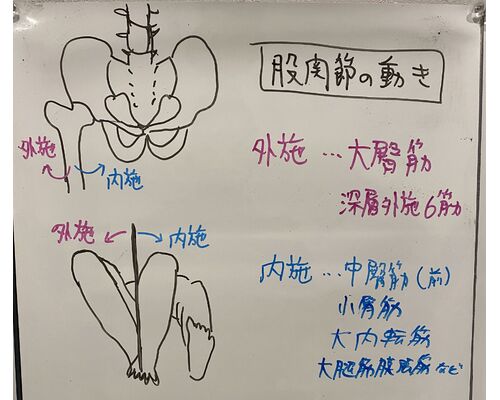 股関節の動き
外施
内施
外施 … 大臀筋
深層外施6筋
外施
内施
内施 … 中臀筋(前)
小臀筋
大内転筋
大腿筋膜張筋など